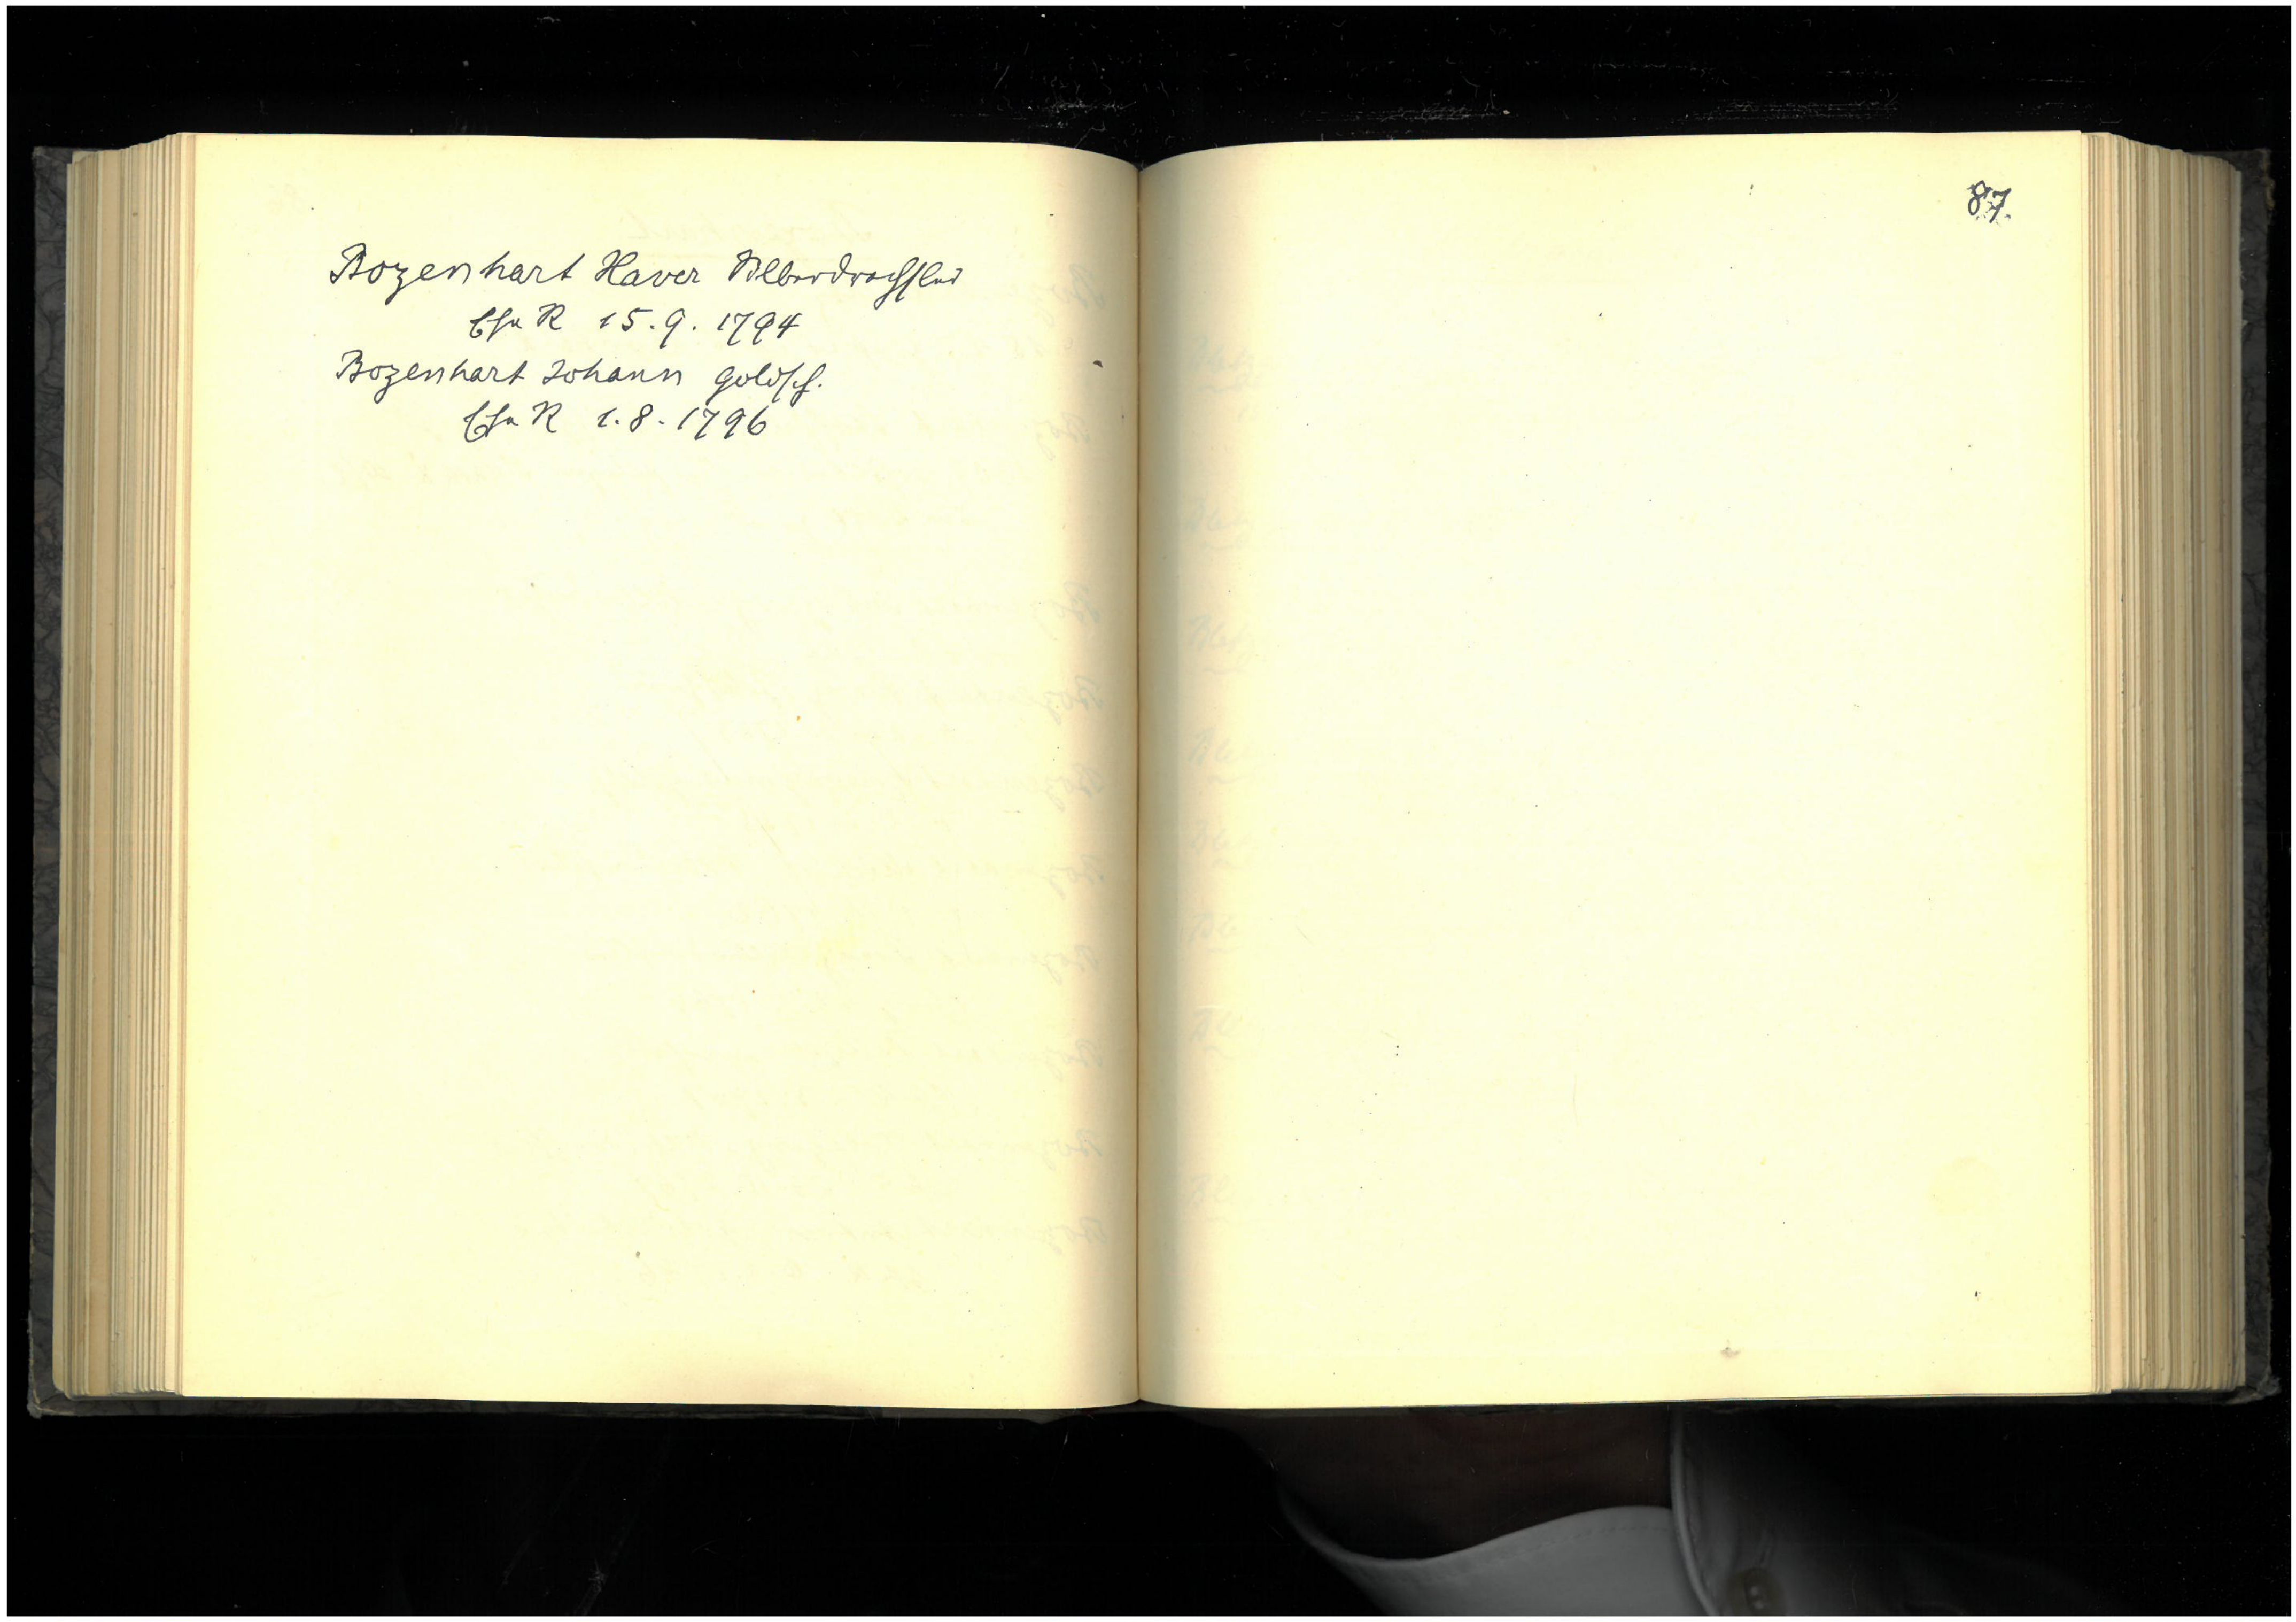 Bozenhart Xaver Silberdrechsler
R 15.9.1794
Bozenhart Johann Goldsch.
R 1.8.1796
87.